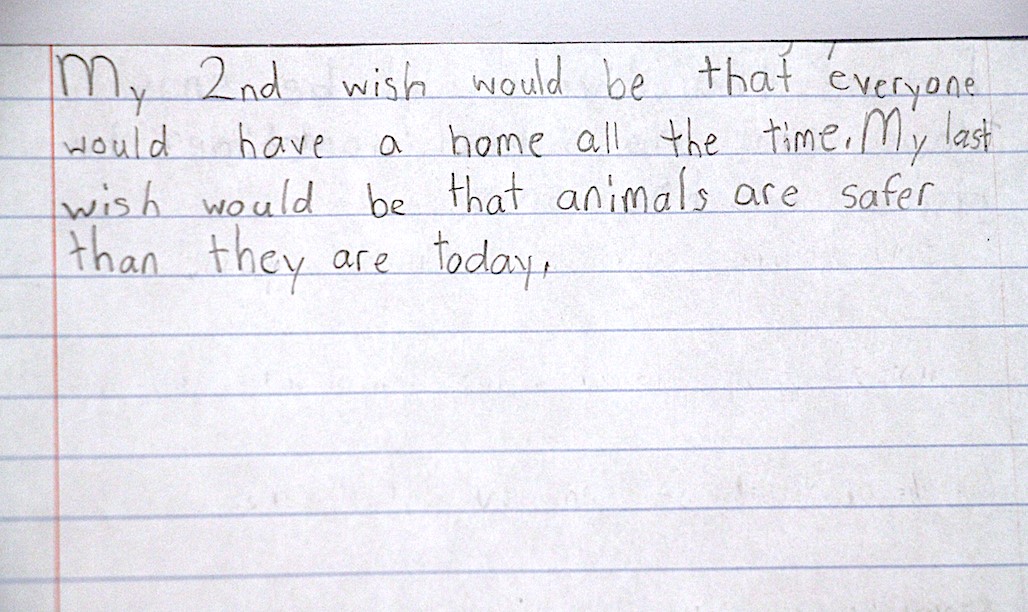 My 2nd wish would be that everyone
would have a home all the time. My last
wish would be that animals are safer
than they are today.